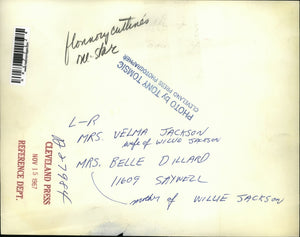 me-star
PHOTO by TONY TOMSIC
CLEVELAND PRESS PHOTOGRAPHER
L-R
MRS. VELMA JACKSON
wife of WILLIE JACKSON
MRS. BELLE DILLARD
11609 SAYWELL
mother of WILLIE JACKSON
CLEVELAND PRESS
NOV 15 1967
REFERENCE DEPT.